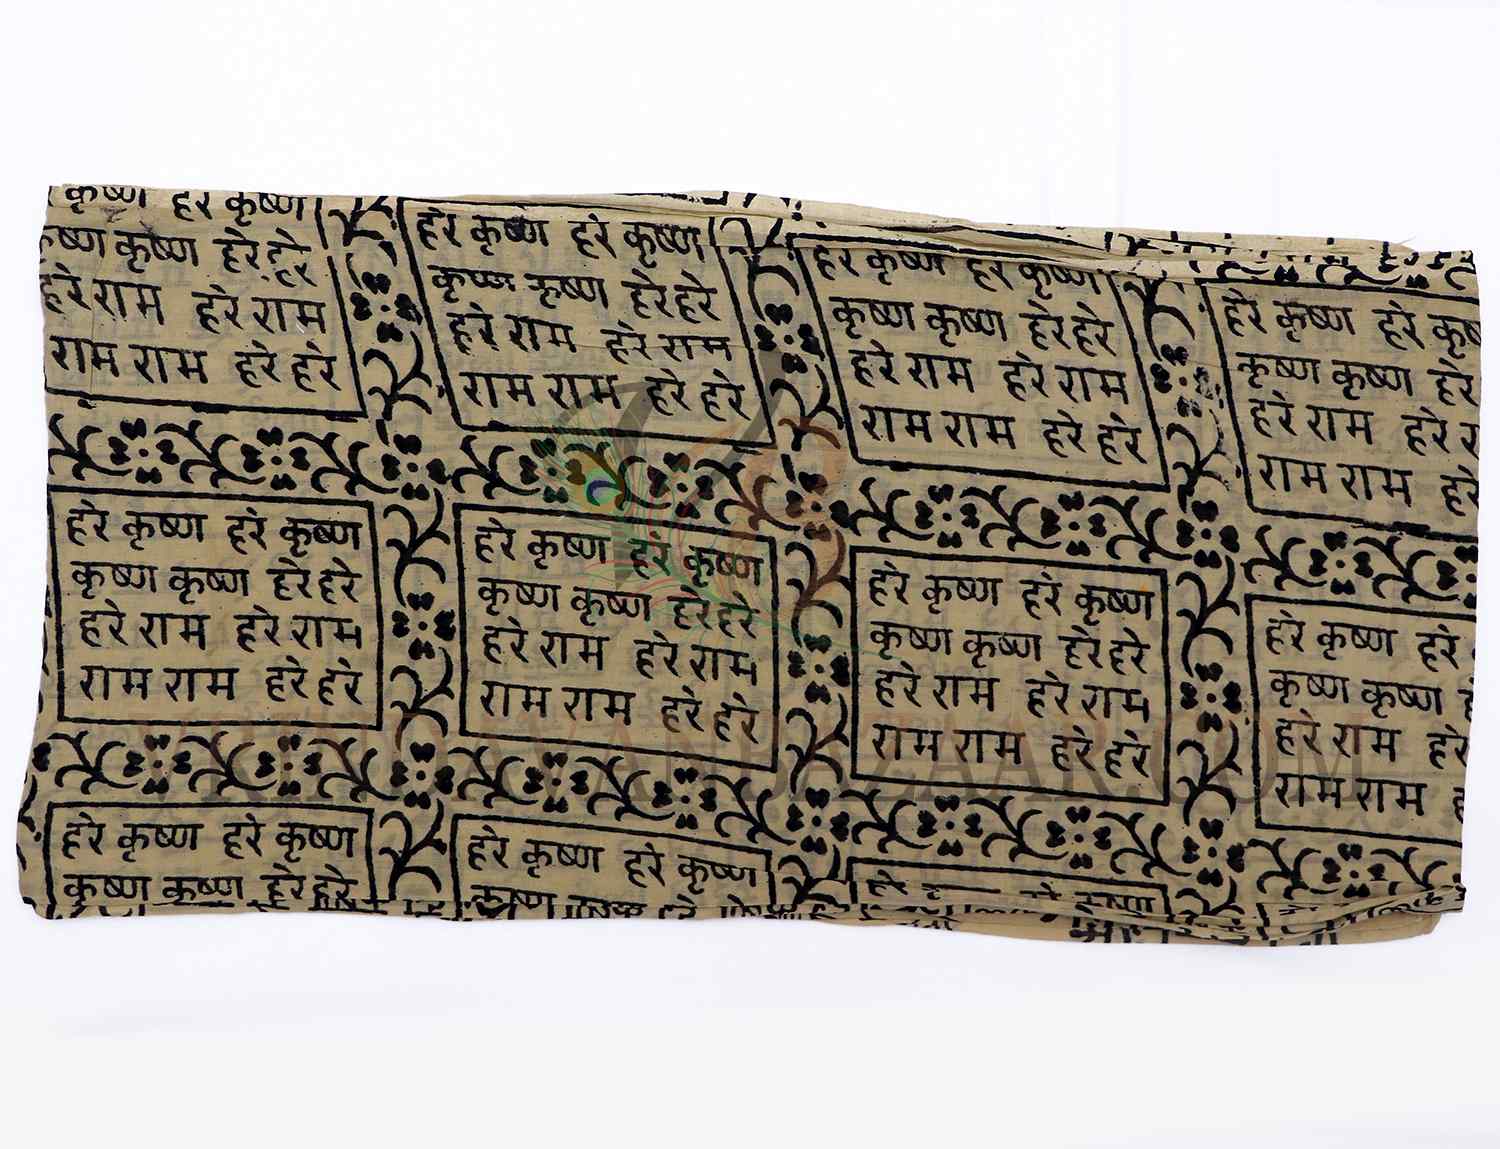 कृष्ण हरे कृष्ण
कृष्ण कृष्ण हरे हरे
हरे राम हरे राम
राम राम हरे हरे
हरे कृष्ण हरे कृष्ण
कृष्ण कृष्ण हरे हरे
हरे राम हरे राम
राम राम हरे हरे
हरे कृष्ण हरे कृष्ण
कृष्ण कृष्ण हरे हरे
हरे राम हरे राम
राम राम हरे हरे
हरे कृष्ण हरे
कृष्ण कृष्ण हरे
हरे राम हरे
राम राम हरे
हरे कृष्ण हरे कृष्ण
कृष्ण कृष्ण हरे हरे
हरे राम हरे राम
राम राम हरे हरे
हरे कृष्ण हरे कृष्ण
कृष्ण कृष्ण हरे हरे
हरे राम हरे राम
राम राम हरे हरे
हरे कृष्ण हरे कृष्ण
कृष्ण कृष्ण हरे हरे
हरे राम हरे राम
राम राम हरे हरे
हरे कृष्ण हरे
कृष्ण कृष्ण
हरे राम हरे
राम राम
VRINDAVANBAZAAR.COM
हरे कृष्ण हरे कृष्ण
कृष्ण कृष्ण हरे हरे
हरे कृष्ण हरे कृष्ण
कृष्ण कृष्ण हरे